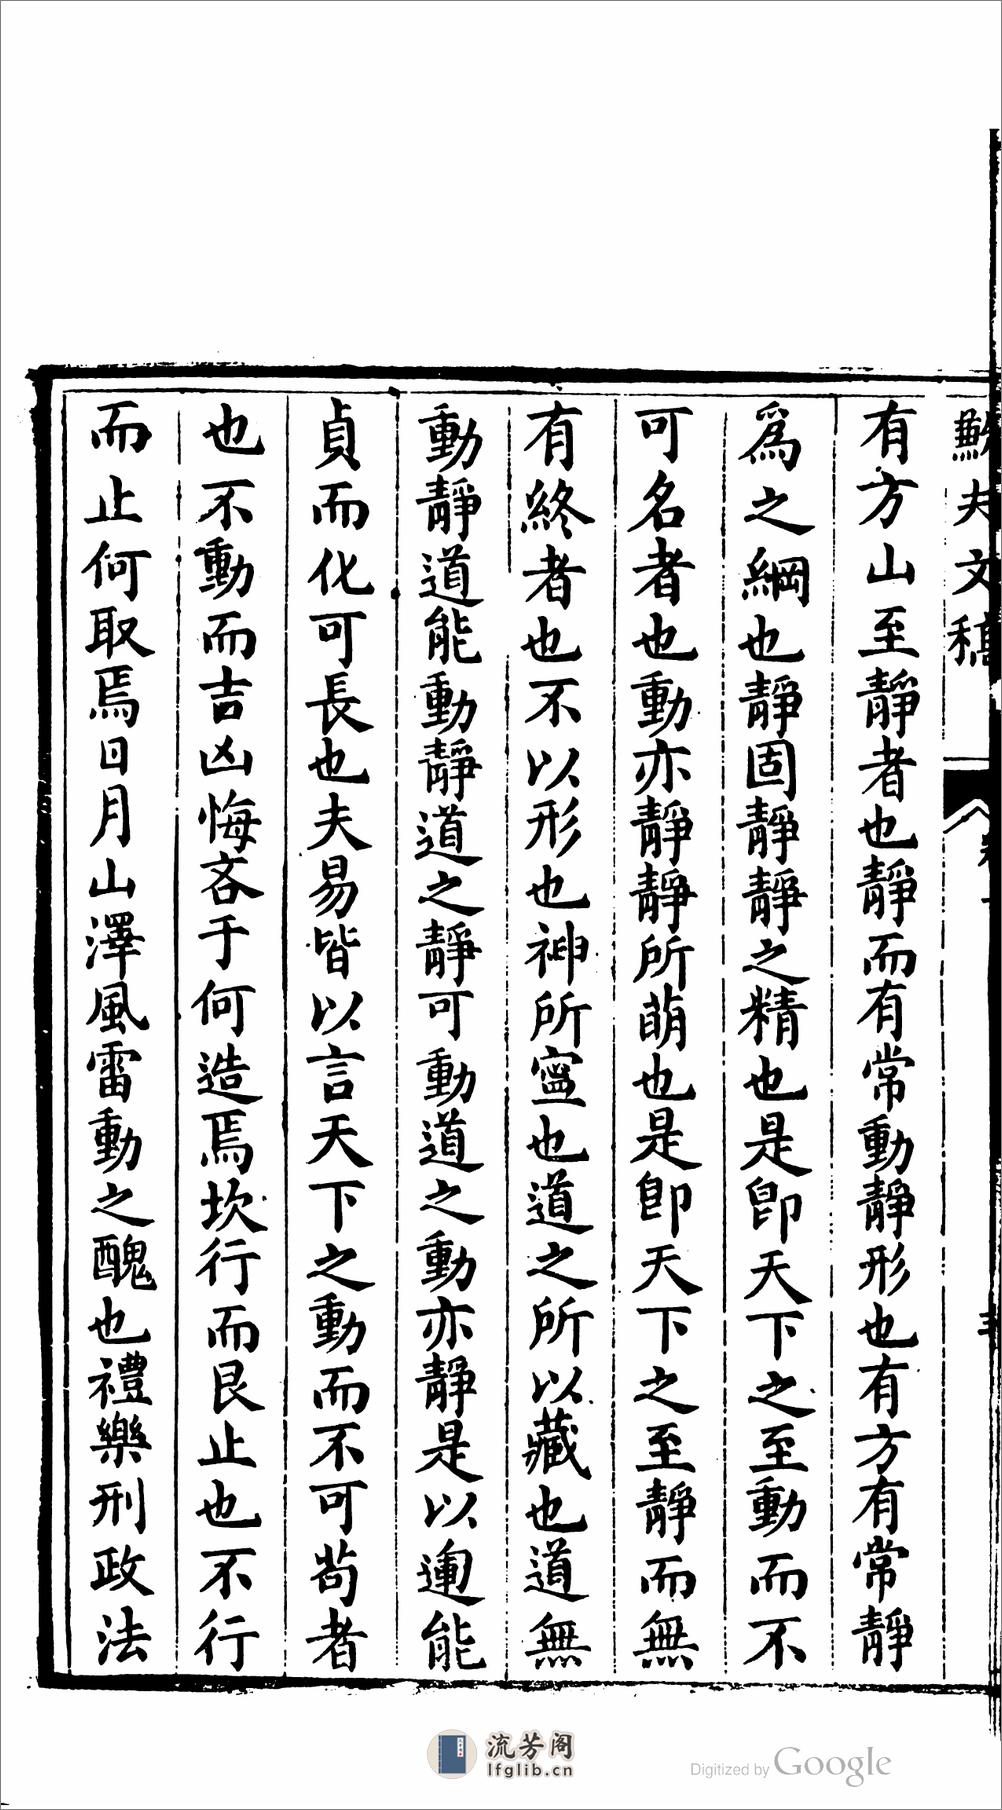 夫文稿
有方山至靜者也靜而有常動靜形也有方有常靜
爲之綱也靜固靜靜之精也是卽天下之至動而不
可名者也動亦靜靜所萌也是卽天下之至靜而無
有終者也不以形也神所寍也道之所以藏也道無
動靜道能動靜道之靜可動道之動亦靜是以運能
貞而化可長也夫易皆以言天下之動而不可苟者
也不動而吉凶悔吝于何造焉坎行而艮止也不行
而止何取焉日月山澤風雷動之醜也禮樂刑政法
流芳阁
lfglib.cn
Digitized by Google